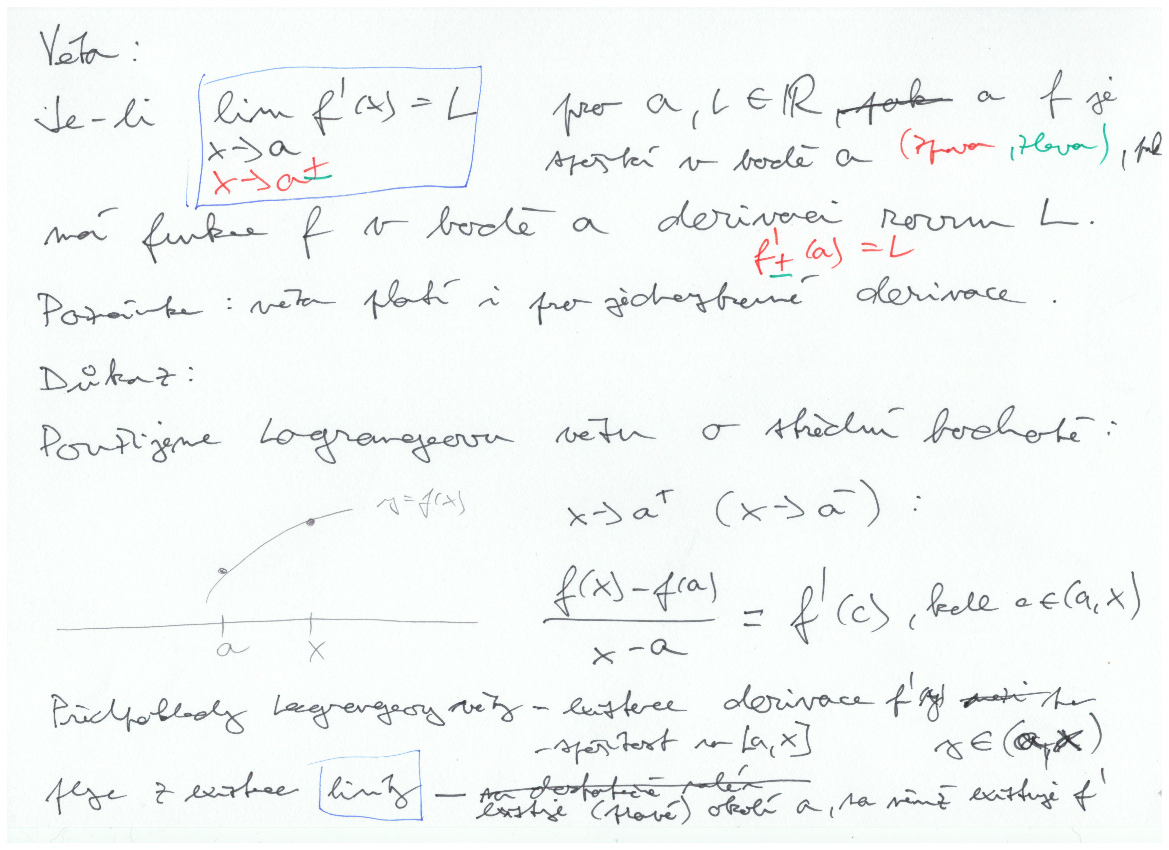 Věta:
Je-li lim f'(x) = L pro a, L ∈ ℝ, pak a f je
x→a spojitá v bodě a (zprava, zleva), pak
x→a±
má funkce f v bodě a derivaci rovnu L.
f'±(a) = L
Poznámka: věta platí i pro jednostranné derivace.
Důkaz:
Použijeme Lagrangeovu větu o střední hodnotě:
y=f(x)
x→a⁺ (x→a⁻):
(f(x)-f(a))/(x-a) = f'(c), kde c∈(a,x)
a x
Předpoklady Lagrangeovy věty - existence derivace f'(y)
-spojitost na [a,x] y∈(a,x)
plyne z existence limity — na dostatečně malém
existuje (pravé) okolí a, na němž existuje f'